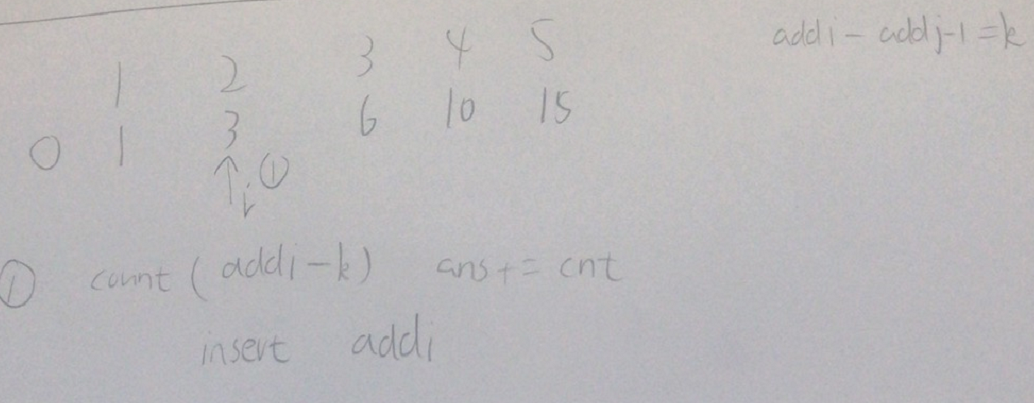 1 2 3 4 5 addi - addj-1 = k
0 1 3 6 10 15
↑i ①
① count (addi-k) ans += cnt
insert addi